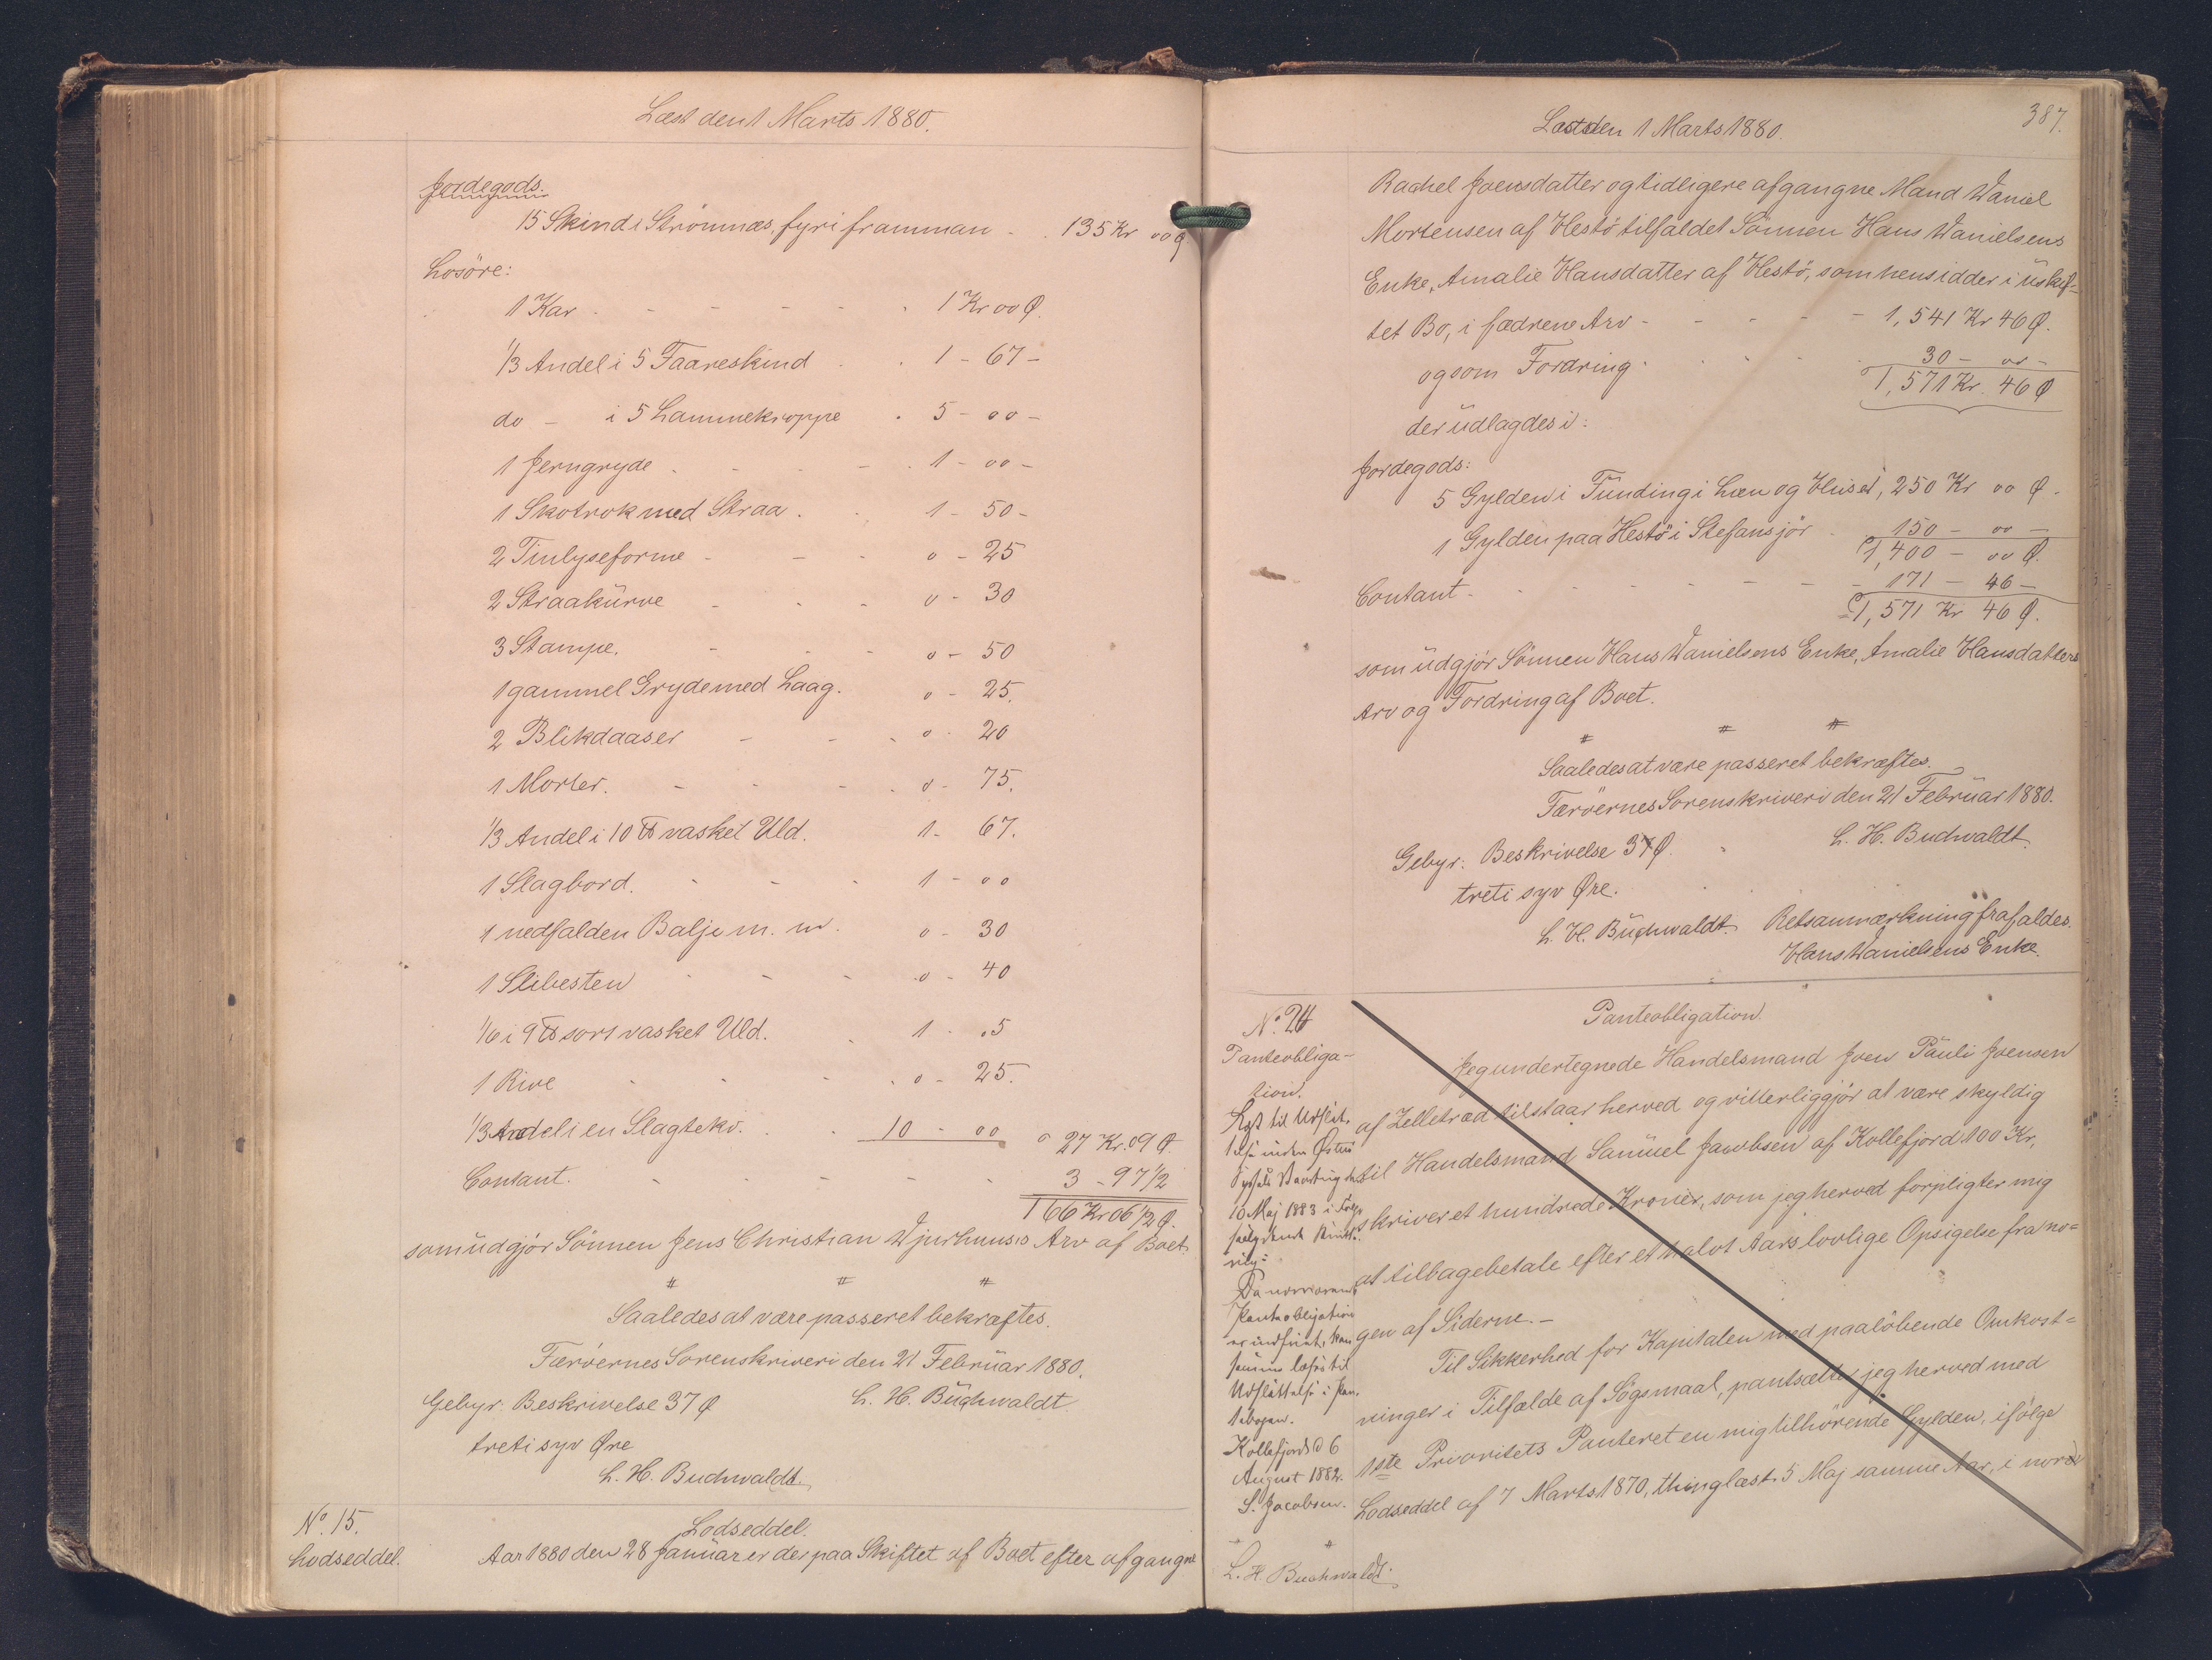 Læst den 1 Marts 1880.
Jordegods.
15 Skind i Strömnæs, fyri framman - . 135 Kr 00 Ø
Losöre:
1 Kar - - - - - 1 Kr 00 Ø.
1/3 Andel i 5 Faareskind . . 1 - 67 -
do - i 5 Lammekroppe . 5 - 00 -
1 Jerngryde . - - - . 1 - 00 -
1 Skotrok med Straa . . 1 - 50 -
2 Tinlyseforme - - - 0 - 25
2 Straakürve - - - 0 - 30
3 Stampe. - - - 0 - 50
1 gammel Gryde med Laag. 0 - 25.
2 Blikdaaser - - - 0 - 20
1 Morter. - - - 0 - 75.
1/3 Andel i 10 ℔ vasket Uld. 1 - 67.
1 Slagbord. - - - 1 - 00
1 nedfalden Balje m. m. 0 - 30
1 Slibesten - - - 0 - 40
1/6 i 9 ℔ sort vasket Uld. . 1 - .5
1 Rive - - - . 0 - 25.
1/3 Andel i en Slagteko. . . 10 - 00 27 Kr. 09 Ø
Contant. - - - - - 3 - 97 1/2
166 Kr 06 1/2 Ø.
som üdgjör Sönnen Jens Christian Wjurhuusis Arv af Boet.
# # #
Saaledes at være passeret bekræftes.
Færöernes Sorenskriveri den 21 Februar 1880.
Gebyr: Beskrivelse 37 Ø L. H. Buchwaldt.
treti syv Øre
L. H. Buchwaldt.
No. 15.
Lodseddel.
Lodseddel.
Aar 1880 den 28 Januar er der paa Skiftet af Boet efter afgangne
387.
Læst den 1 Marts 1880.
Rachel Joensdatter og tidligere afgangne Mand Daniel
Mortensen af Hestö tilfaldet Sönnen Hans Danielsens
Enke, Amalie Hansdatter af Hestö, som hensidder i üskif-
tet Bo, i fædrene Arv - - - - 1,541 Kr 46 Ø.
og som Fordring . . . 30 - 00 -
1,571 Kr. 46 Ø
der üdlagdes i:
Jordegods:
5 Gylden i Funding i Læn og Huset, 1,250 Kr 00 Ø.
1 Gylden paa Hestö i Stefansjör . 150 - 00 -
1,400 - 00 Ø.
Contant - - - - - 171 - 46 -
1,571 Kr 46 Ø.
som üdgjör Sönnen Hans Danielsens Enke, Amalie Hansdatters
Arv og Fordring af Boet.
# # #
Saaledes at være passeret bekræftes.
Færöernes Sorenskriveri den 21 Februar 1880.
L. H. Buchwaldt.
Gebyr: Beskrivelse 37 Ø.
treti syv Øre.
L. H. Buchwaldt. Retsanmærkning frafaldes.
Hans Danielsens Enke.
No. 24
Panteobliga-
tion.
Panteobligation.
Jeg undertegnede Handelsmand Joen Pauli Joensen
af Zelletræd tilstaar herved og vitterliggjör at være skyldig
til Handelsmand Samuel Jacobsen af Kollefjord 100 Kr,
skriver et hundrede Kroner, som jeg herved forpligter mig
at tilbagebetale efter et halvt Aars lovlige Opsigelse fra no-
gen af Siderne. -
Til Sikkerhed for Kapitalen med paalöbende Omkost-
ninger i Tilfælde af Sögsmaal, pantsætter jeg herved med
1ste Prioritets Panteret en mig tilhörende Gylden, ifölge
Lodseddel af 7 Marts 1870, thinglæst 5 Maj samme Aar, i nord
Læst til Udslet-
telse inden Østerö
Syssels Vaarting den
16 Maj 1883 i
Da nærværende
Panteobligation
er indfriet, kan
samme læses til
Udslettelse i Pan-
tebogen.
Kollefjord d 6
August 1882.
S. Jacobsen.
L. H. Buchwaldt.